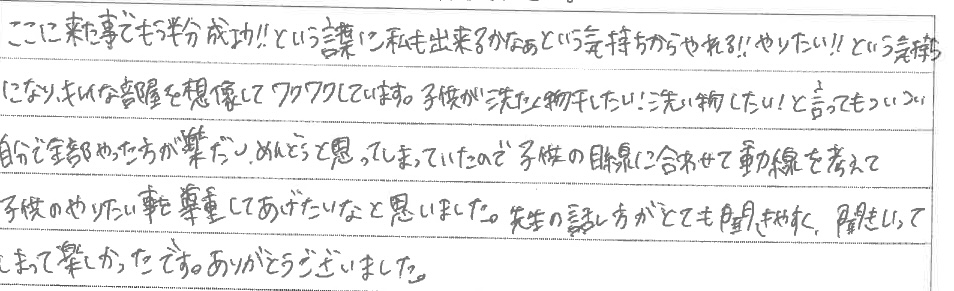 ここに来た事でもう半分成功!!という言葉に私も出来るかなぁという気持ちからやれる!!やりたい!!という気持ち
になり、キレイな部屋を想像してワクワクしています。子供が洗たく物干したい!洗い物したい!と言ってもついつい
自分で全部やった方が楽だし、めんどうと思ってしまっていたので子供の目線に合わせて動線を考えて
子供のやりたい事を尊重してあげたいなと思いました。先生の話し方がとても聞きやすく、聞きいって
しまって楽しかったです。ありがとうございました。